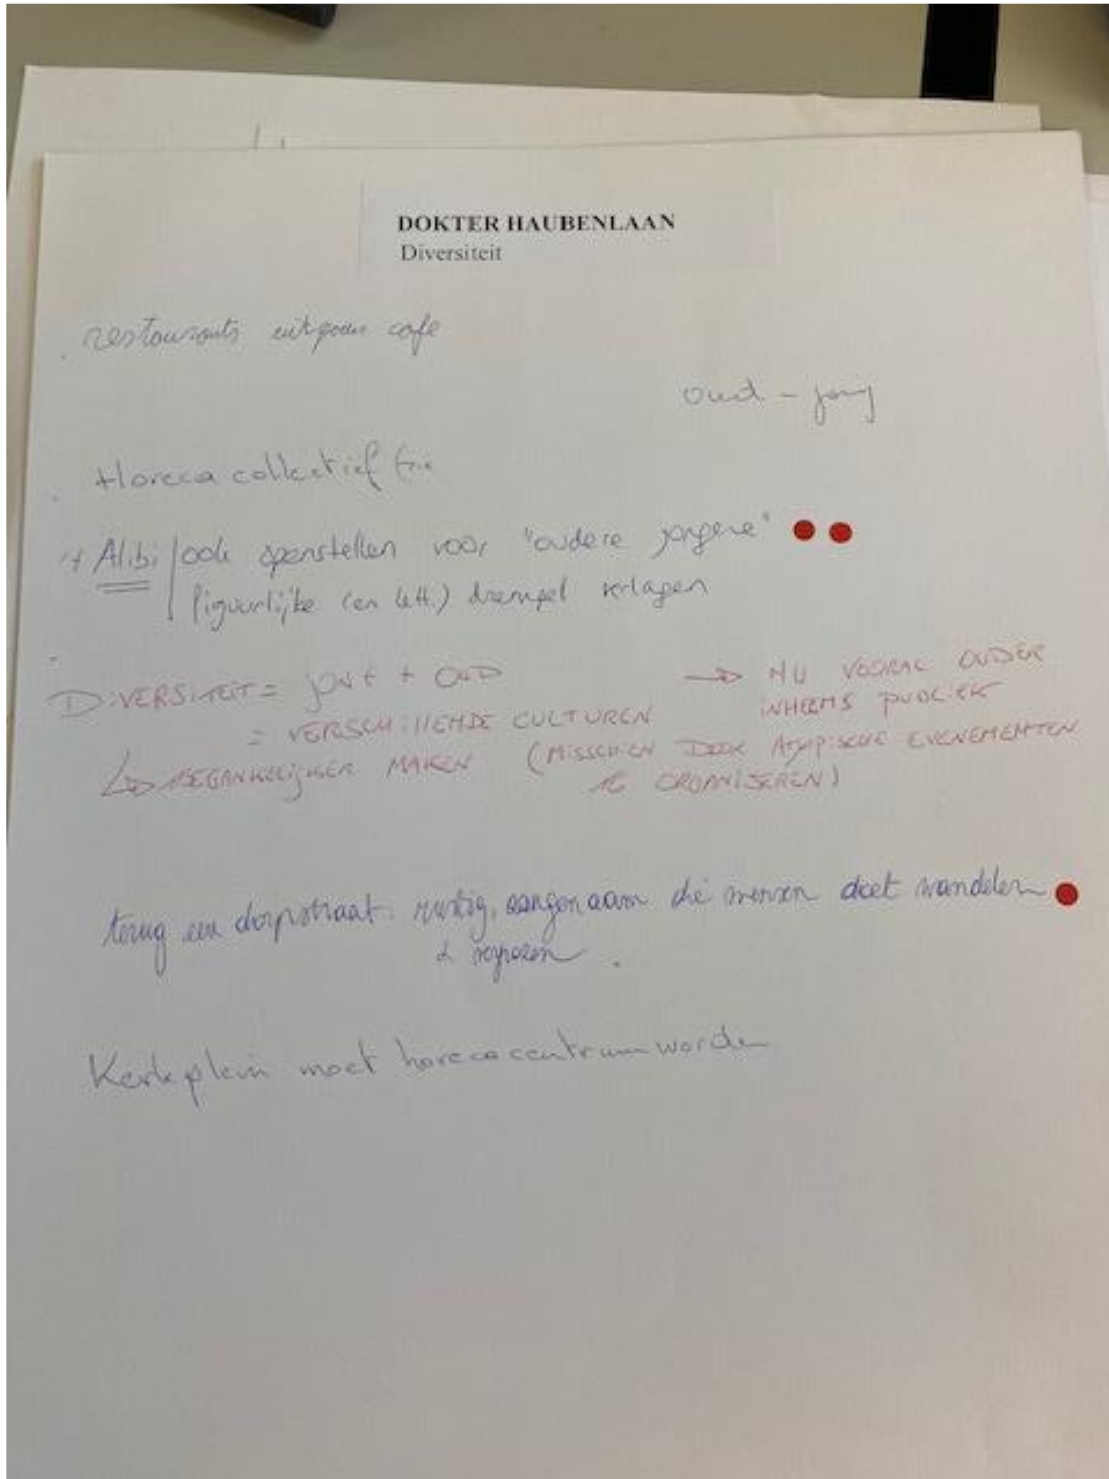 DOKTER HAUBENLAAN
Diversiteit
restaurants uitgaan cafe
oud - jong
Horeca collectief
+ Alibi / ook openstellen voor "oudere jongere"
figuurlijke (en lett.) drempel verlagen
DIVERSITEIT = JONG + OUD
→ NU VOORAL OUDER
INHEEMS PUBLIEK
= VERSCHILLENDE CULTUREN
↳ TOEGANKELIJKER MAKEN (MISSCHIEN DOOR ATYPISCHE EVENEMENTEN
TE ORGANISEREN)
terug een dorpstraat: rustig, aangenaam die mensen doet wandelen
Kerkplein moet horecacentrum worden